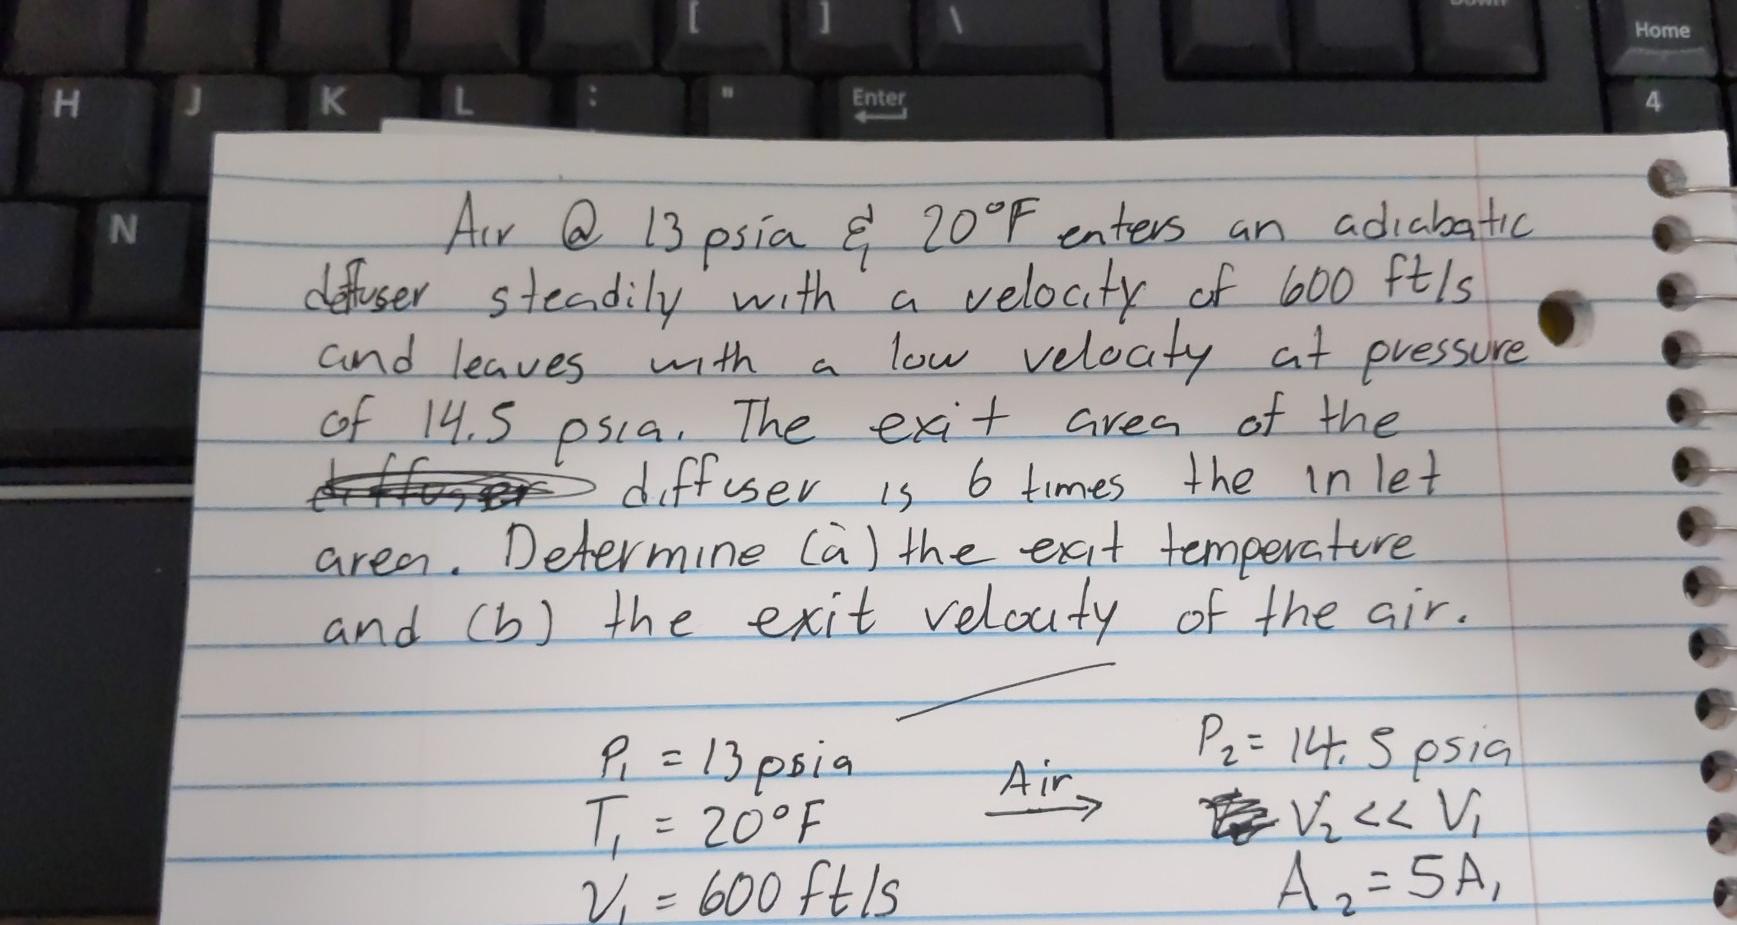 [ ] \ Down Home
H J K L : " Enter 4
N
Air @ 13 psia & 20°F enters an adiabatic
diffuser steadily with a velocity of 600 ft/s
and leaves with a low velocity at pressure
of 14.5 psia. The exit area of the
diffuser diffuser is 6 times the inlet
area. Determine (a) the exit temperature
and (b) the exit velocity of the air.
P₁ = 13 psia
T₁ = 20°F
V₁ = 600 ft/s
Air
P₂ = 14.5 psia
V₂ << V₁
A₂ = 5A₁